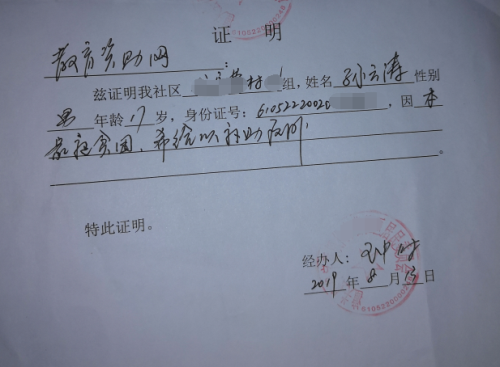 证 明
教育资助网：
兹证明我社区 村 组，姓名 孙云涛 性别
男 年龄 17 岁，身份证号：61052220020 ，因 本
家庭贫困，希给以社助
。
特此证明。
经办人：
2019 年 8 月 13 日